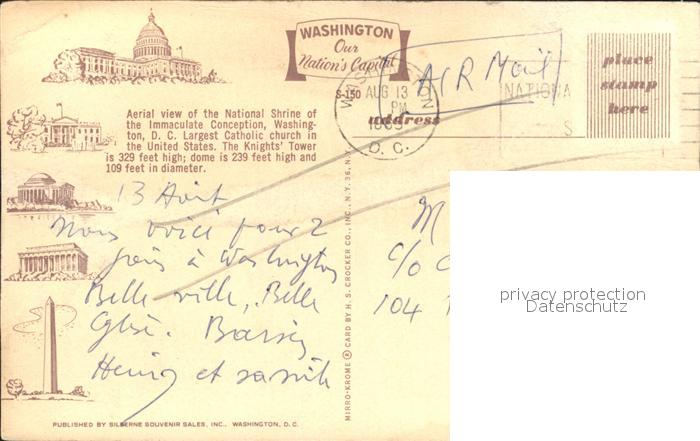 WASHINGTON
Our
Nation's Capital
S-150
WASHINGTON
AUG 13
PM
D. C.
AIR Mail
NATIONA
S
place
stamp
here
address
Aerial view of the National Shrine of
the Immaculate Conception, Washing-
ton, D. C. Largest Catholic church in
the United States. The Knights' Tower
is 329 feet high; dome is 239 feet high and
109 feet in diameter.
13 Août
Nous voici pour 2
jours à Washington
Belle ville, Belle
Eglise. Baisers
Henry et
M
c/o C
104
MIRRO-KROME ® CARD BY H. S. CROCKER CO., INC., N.Y. 36, N.
privacy protection
Datenschutz
PUBLISHED BY SILBERNE SOUVENIR SALES, INC., WASHINGTON, D. C.